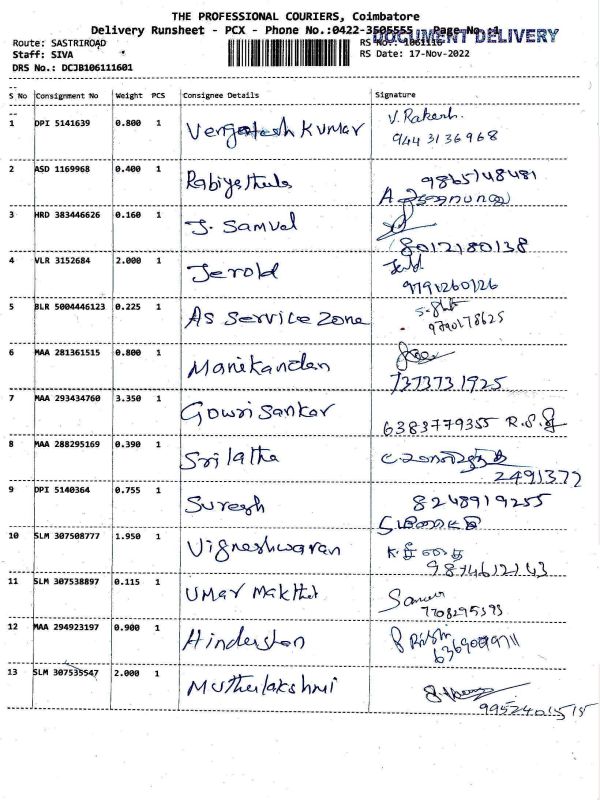 THE PROFESSIONAL COURIERS, Coimbatore
Delivery Runsheet - PCX - Phone No.:0422-3505555 Page No.:1
DOCUMENT DELIVERY
Route: SASTRIROAD
RS No.: 1061116
Staff: SIVA
RS Date: 17-Nov-2022
DRS No.: DCJB106111601
S No Consignment No Weight PCS Consignee Details Signature
1 DPI 5141639 0.800 1 Vengatesh Kumar V. Rakesh.
9443136968
2 ASD 1169968 0.400 1 9865148481
3 HRD 383446626 0.160 1 J. Samuel
8012180138
4 VLR 3152684 2.000 1 Jerold Jerold
9791260126
5 BLR 5004446123 0.225 1 As Service Zone
9790178625
6 MAA 281361515 0.800 1 Manikandan
7373731925
7 MAA 293434760 3.350 1 Gowri Sankar
6383779355
8 MAA 288295169 0.390 1 Srilatha
2491372
9 DPI 5140364 0.755 1 Suresh 8248919255
10 SLM 307508777 1.950 1 Vigneshwaran
9874612143
11 SLM 307538897 0.115 1 Umar
7708295393
12 MAA 294923197 0.900 1 Hinderston
13 SLM 307535547 2.000 1 Muthulakshmi
9952401515